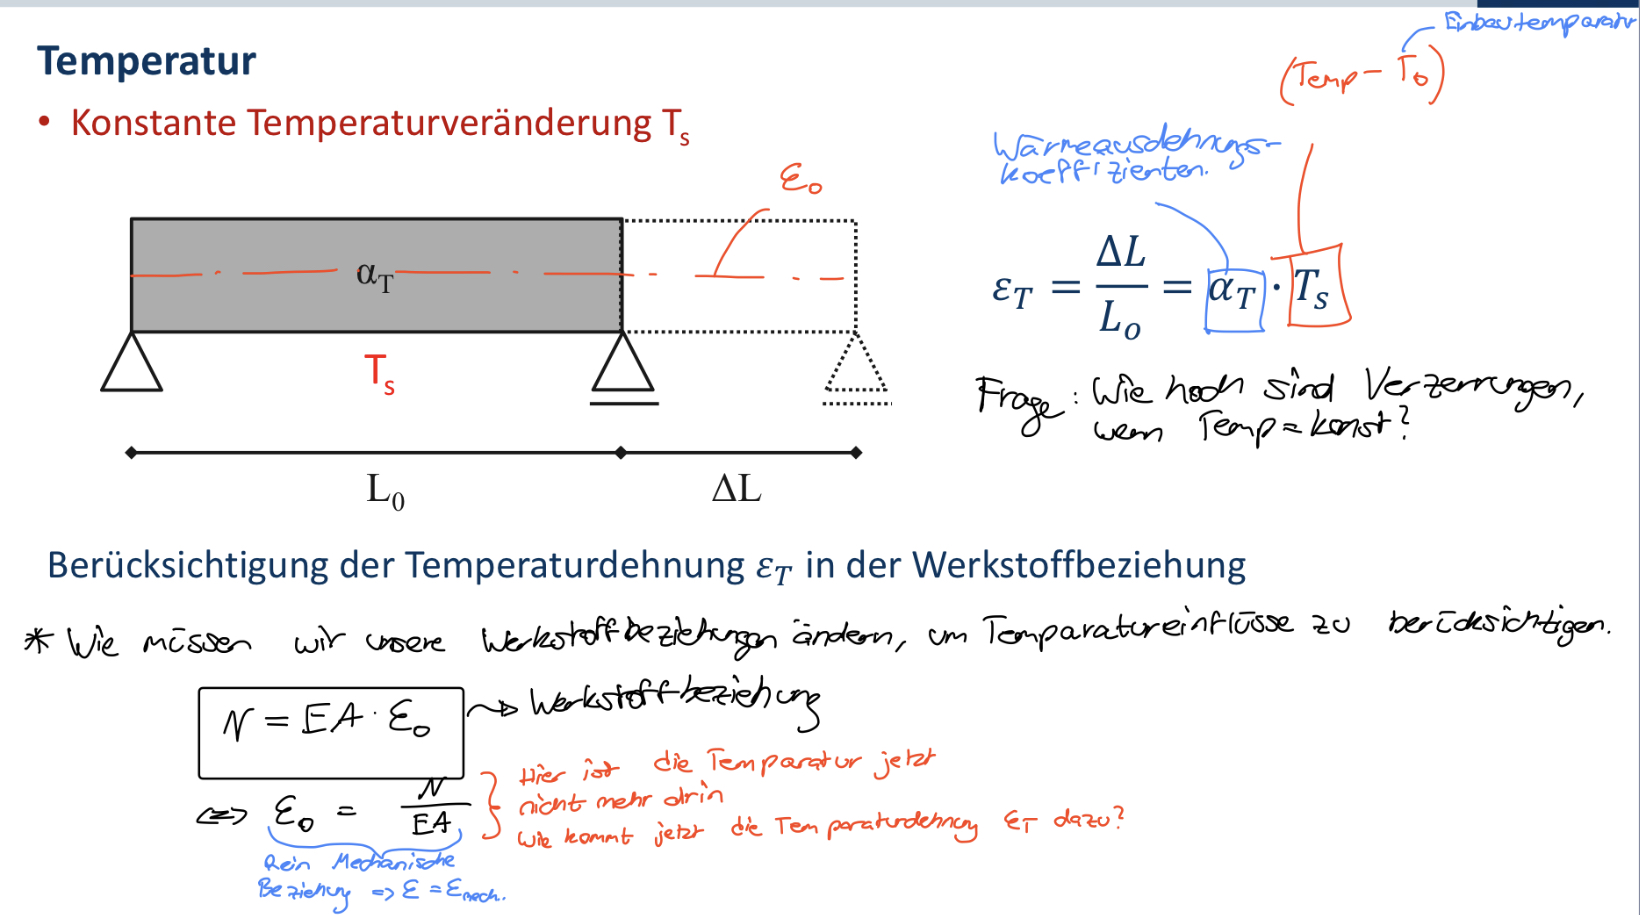 Einbautemparatur
(Temp - T₀)
Temperatur
• Konstante Temperaturveränderung Tₛ
Wärmeausdehnungs-
koeffizienten.
ε₀
α_T
ε_T = ΔL / L₀ = α_T · Tₛ
Tₛ
Frage: Wie hoch sind Verzerrungen,
wenn Temp = konst?
L₀ ΔL
Berücksichtigung der Temperaturdehnung ε_T in der Werkstoffbeziehung
* Wie müssen wir unsere Werkstoffbeziehungen ändern, um Temparatureinflüsse zu berücksichtigen.
N = EA · ε₀ → Werkstoffbeziehung
Hier ist die Temparatur jetzt
nicht mehr drin
⇔ ε₀ = N / EA
Wie kommt jetzt die Temparaturdehnung ε_T dazu?
Rein Mechanische
Beziehung => ε = ε_mech.